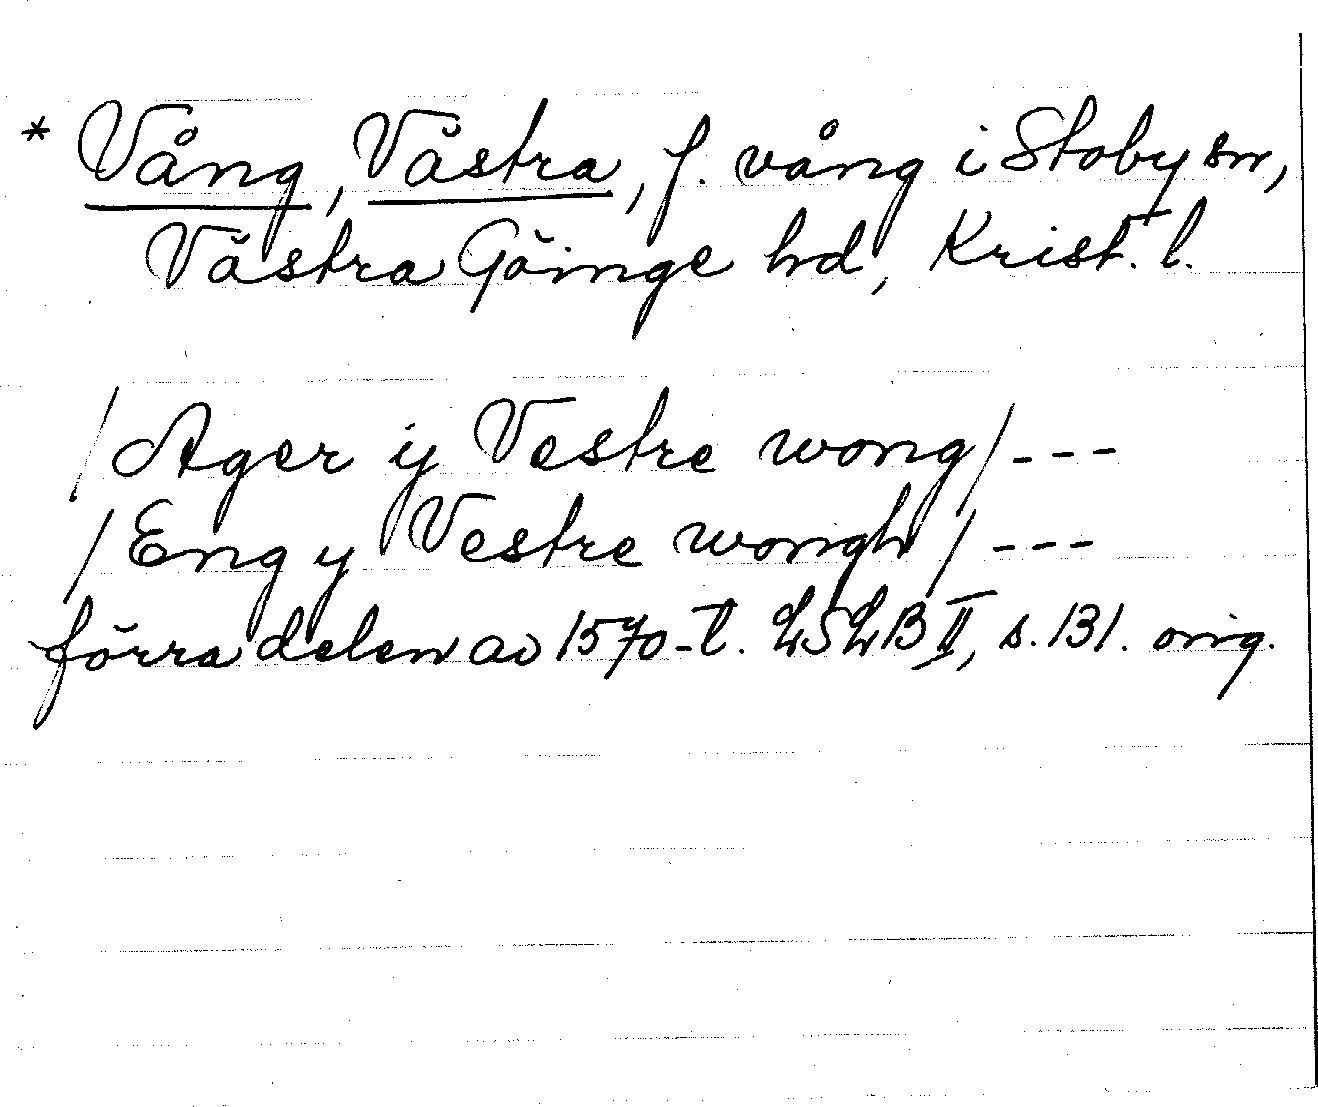 * Vång, Västra, f. vång i Stoby sn,
Västra Göinge hd, Krist. l.
/Ager ij Vestre wong/ ---
/Eng y Vestre wongh/ ---
förra delen av 1570-t. LSLB II, s. 131. orig.